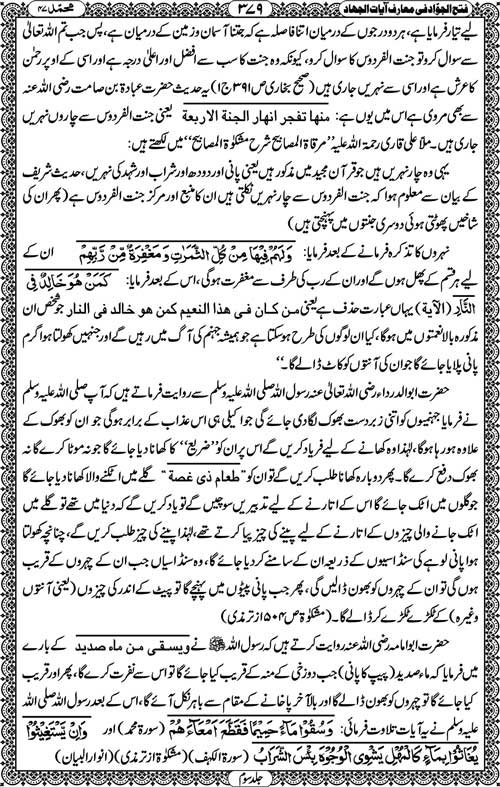 فتح الجوّاد فی معارف آیات الجهاد ۳۷۹ محمّد ۴۷
لیے تیار فرمایا ہے، ہر دو درجوں کے درمیان اتنا فاصلہ ہے کہ جتنا آسمان و زمین کے درمیان ہے، پس جب تم اللہ تعالیٰ
سے سوال کرو تو جنت الفردوس کا سوال کرو، کیونکہ وہ جنت کا سب سے افضل اور اعلیٰ درجہ ہے اور اسی کے اوپر رحمٰن
کا عرش ہے اور اسی سے نہریں جاری ہیں (صحیح بخاری ص ۳۹۱ ج ۱) یہ حدیث حضرت عبادة بن صامت رضی اللہ عنہ
سے بھی مروی ہے اس میں یوں ہے: منها تفجر انهار الجنة الاربعة یعنی جنت الفردوس سے چاروں نہریں
جاری ہیں۔ ملا علی قاری رحمۃ اللہ علیہ ’’مرقاۃ المصابیح شرح مشکوٰۃ المصابیح‘‘ میں لکھتے ہیں:
یہی وہ چار نہریں ہیں جو قرآن مجید میں مذکور ہیں یعنی پانی اور دودھ اور شراب اور شہد کی نہریں، حدیث شریف
کے بیان سے معلوم ہوا کہ جنت الفردوس سے چار نہریں نکلتی ہیں ان کا منبع اور مرکز جنت الفردوس ہے (پھر ان کی
شاخیں پھوٹتی ہوئی دوسری جنتوں میں پہنچتی ہیں)
نہروں کا تذکرہ فرمانے کے بعد فرمایا: وَلَهُمْ فِيْهَا مِنْ كُلِّ الثَّمَرٰتِ وَمَغْفِرَةٌ مِّنْ رَّبِّهِمْ ان کے
لیے ہر قسم کے پھل ہوں گے اور ان کے رب کی طرف سے مغفرت ہو گی، اس کے بعد فرمایا: كَمَنْ هُوَ خَالِدٌ فِى
النَّارِ (الآیة) یہاں عبارت حذف ہے یعنی من كان فى هذا النعيم كمن هو خالد فى النار جو شخص ان
مذکورہ بالا نعمتوں میں ہوگا، کیا ان لوگوں کی طرح ہو سکتا ہے جو ہمیشہ جہنم کی آگ میں رہیں گے اور جنہیں کھولتا ہوا گرم
پانی پلایا جائے گا جو ان کی آنتوں کو کاٹ ڈالے گا۔‘‘
حضرت ابو الدرداء رضی اللہ تعالیٰ عنہ رسول اللہ صلی اللہ علیہ وسلم سے روایت فرماتے ہیں کہ آپ صلی اللہ علیہ وسلم
نے فرمایا جہنمیوں کو اتنی زبردست بھوک لگا دی جائے گی جو اکیلی ہی اس عذاب کے برابر ہو گی جو ان کو بھوک کے
علاوہ ہو رہا ہوگا، لہٰذا وہ کھانے کے لیے فریاد کریں گے اس پر ان کو ’’ضریع‘‘ کا کھانا دیا جائے گا جو نہ موٹا کرے گا نہ
بھوک دفع کرے گا۔ پھر دوبارہ کھانا طلب کریں گے تو ان کو ’’طعام ذی غصة‘‘ گلے میں اٹکنے والا کھانا دیا جائے گا
جو گلوں میں اٹک جائے گا اس کے اتارنے کے لیے تدبیریں سوچیں گے تو یاد کریں گے کہ دنیا میں تھے تو گلے میں
اٹک جانے والی چیزوں کے اتارنے کے لیے پینے کی چیز پیا کرتے تھے، لہٰذا پینے کی چیز طلب کریں گے، چنانچہ کھولتا
ہوا پانی لوہے کی سنڈاسیوں کے ذریعہ ان کے سامنے کر دیا جائے گا، وہ سنڈاسیاں جب ان کے چہروں کے قریب
ہوں گی تو ان کے چہروں کو بھون ڈالیں گی، پھر جب پانی پیٹوں میں پہنچے گا تو پیٹ کے اندر کی چیزوں (یعنی آنتوں
وغیرہ) کے ٹکڑے ٹکڑے کر ڈالے گا۔ (مشکوٰۃ ص ۵۰۴ از ترمذی)
حضرت ابو امامہ رضی اللہ عنہ روایت کرتے ہیں کہ رسول اللہ ﷺ نے ویسقى من ماء صديد کے بارے
میں فرمایا کہ ماء صدید (پیپ کا پانی) جب دوزخی کے منہ کے قریب کیا جائے گا تو اس سے نفرت کرے گا، پھر اور قریب
کیا جائے گا تو چہرہ کو بھون ڈالے گا اور بالآخر پاخانے کے مقام سے باہر نکل آئے گا، اس کے بعد رسول اللہ صلی اللہ
علیہ وسلم نے یہ آیات تلاوت فرمائی: وَسُقُوْا مَاءً حَمِيْمًا فَقَطَّعَ اَمْعَاءَهُمْ (سورۃ محمد) اور وَاِنْ يَّسْتَغِيْثُوْا
يُغَاثُوْا بِمَاءٍ كَالْمُهْلِ يَشْوِى الْوُجُوْهَ بِئْسَ الشَّرَابُ (سورۃ الکہف) (مشکوٰۃ از ترمذی) (انوار البیان)
جلد سوم